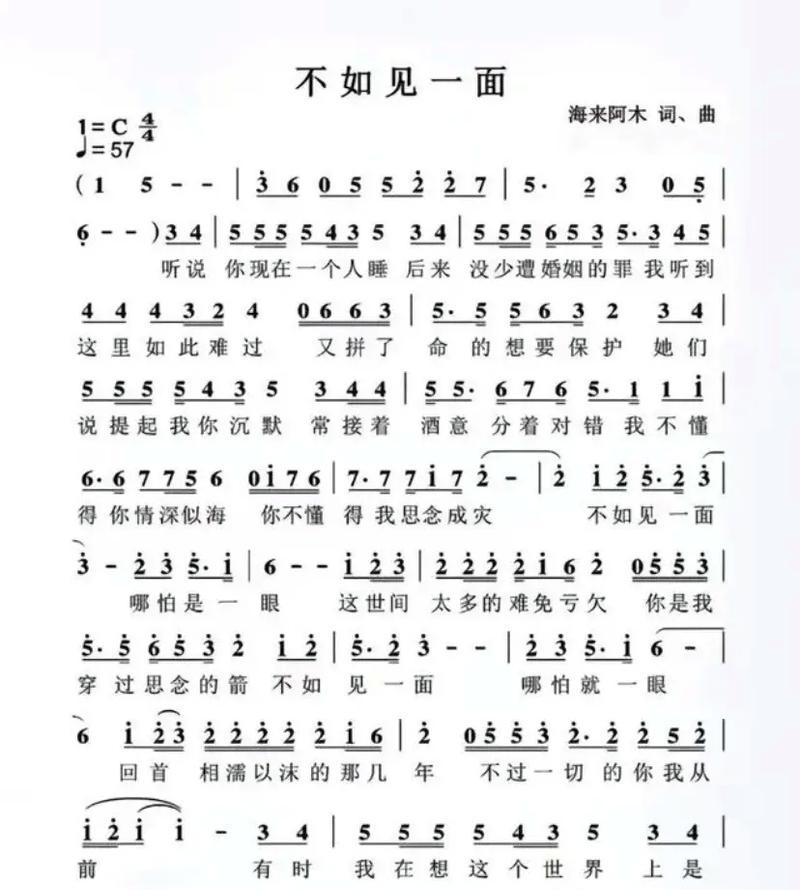 不如见一面
海来阿木 词、曲
1=C 4/4
♩=57
(1 5 - - | 3 6 0 5 5 2 2 7 | 5· 2 3 0 5 |
6 - - ) 3 4 | 5 5 5 5 4 3 5 3 4 | 5 5 5 6 5 3 5· 3 4 5 |
听说 你现在一个人睡 后来 没少遭婚姻的罪我听到
4 4 4 3 2 4 0 6 6 3 | 5· 5 5 6 3 2 3 4 |
这里如此难过 又拼了 命的想要保护 她们
5 5 5 5 4 3 5 3 4 4 | 5 5· 6 7 6 5· 1 1 i |
说提起我你沉默 常接着 酒意 分着对错我不懂
6· 6 7 7 5 6 0 i 7 6 | 7· 7 7 i 7 2 - | 2 i 2 5· 2 3 |
得你情深似海 你不懂 得我思念成灾 不如见一面
3 - 2 3 5· i | 6 - - i 2 3 | 2 2 2 2 i 6 2 0 5 5 3 |
哪怕是一眼 这世间 太多的难免亏欠 你是我
5· 5 6 5 3 2 i 2 | 5· 2 3 - - | 2 3 5· i 6 - |
穿过思念的箭 不如 见一面 哪怕就一眼
6 i 2 3 2 2 2 2 2 i 6 | 2 0 5 5 3 2· 2 2 5 2 |
回首 相濡以沫的那几年 不过一切的你我从
i 2 i i - 3 4 | 5 5 5 5 5 3 5 3 4 |
前 有时 我在想这个世界 上是